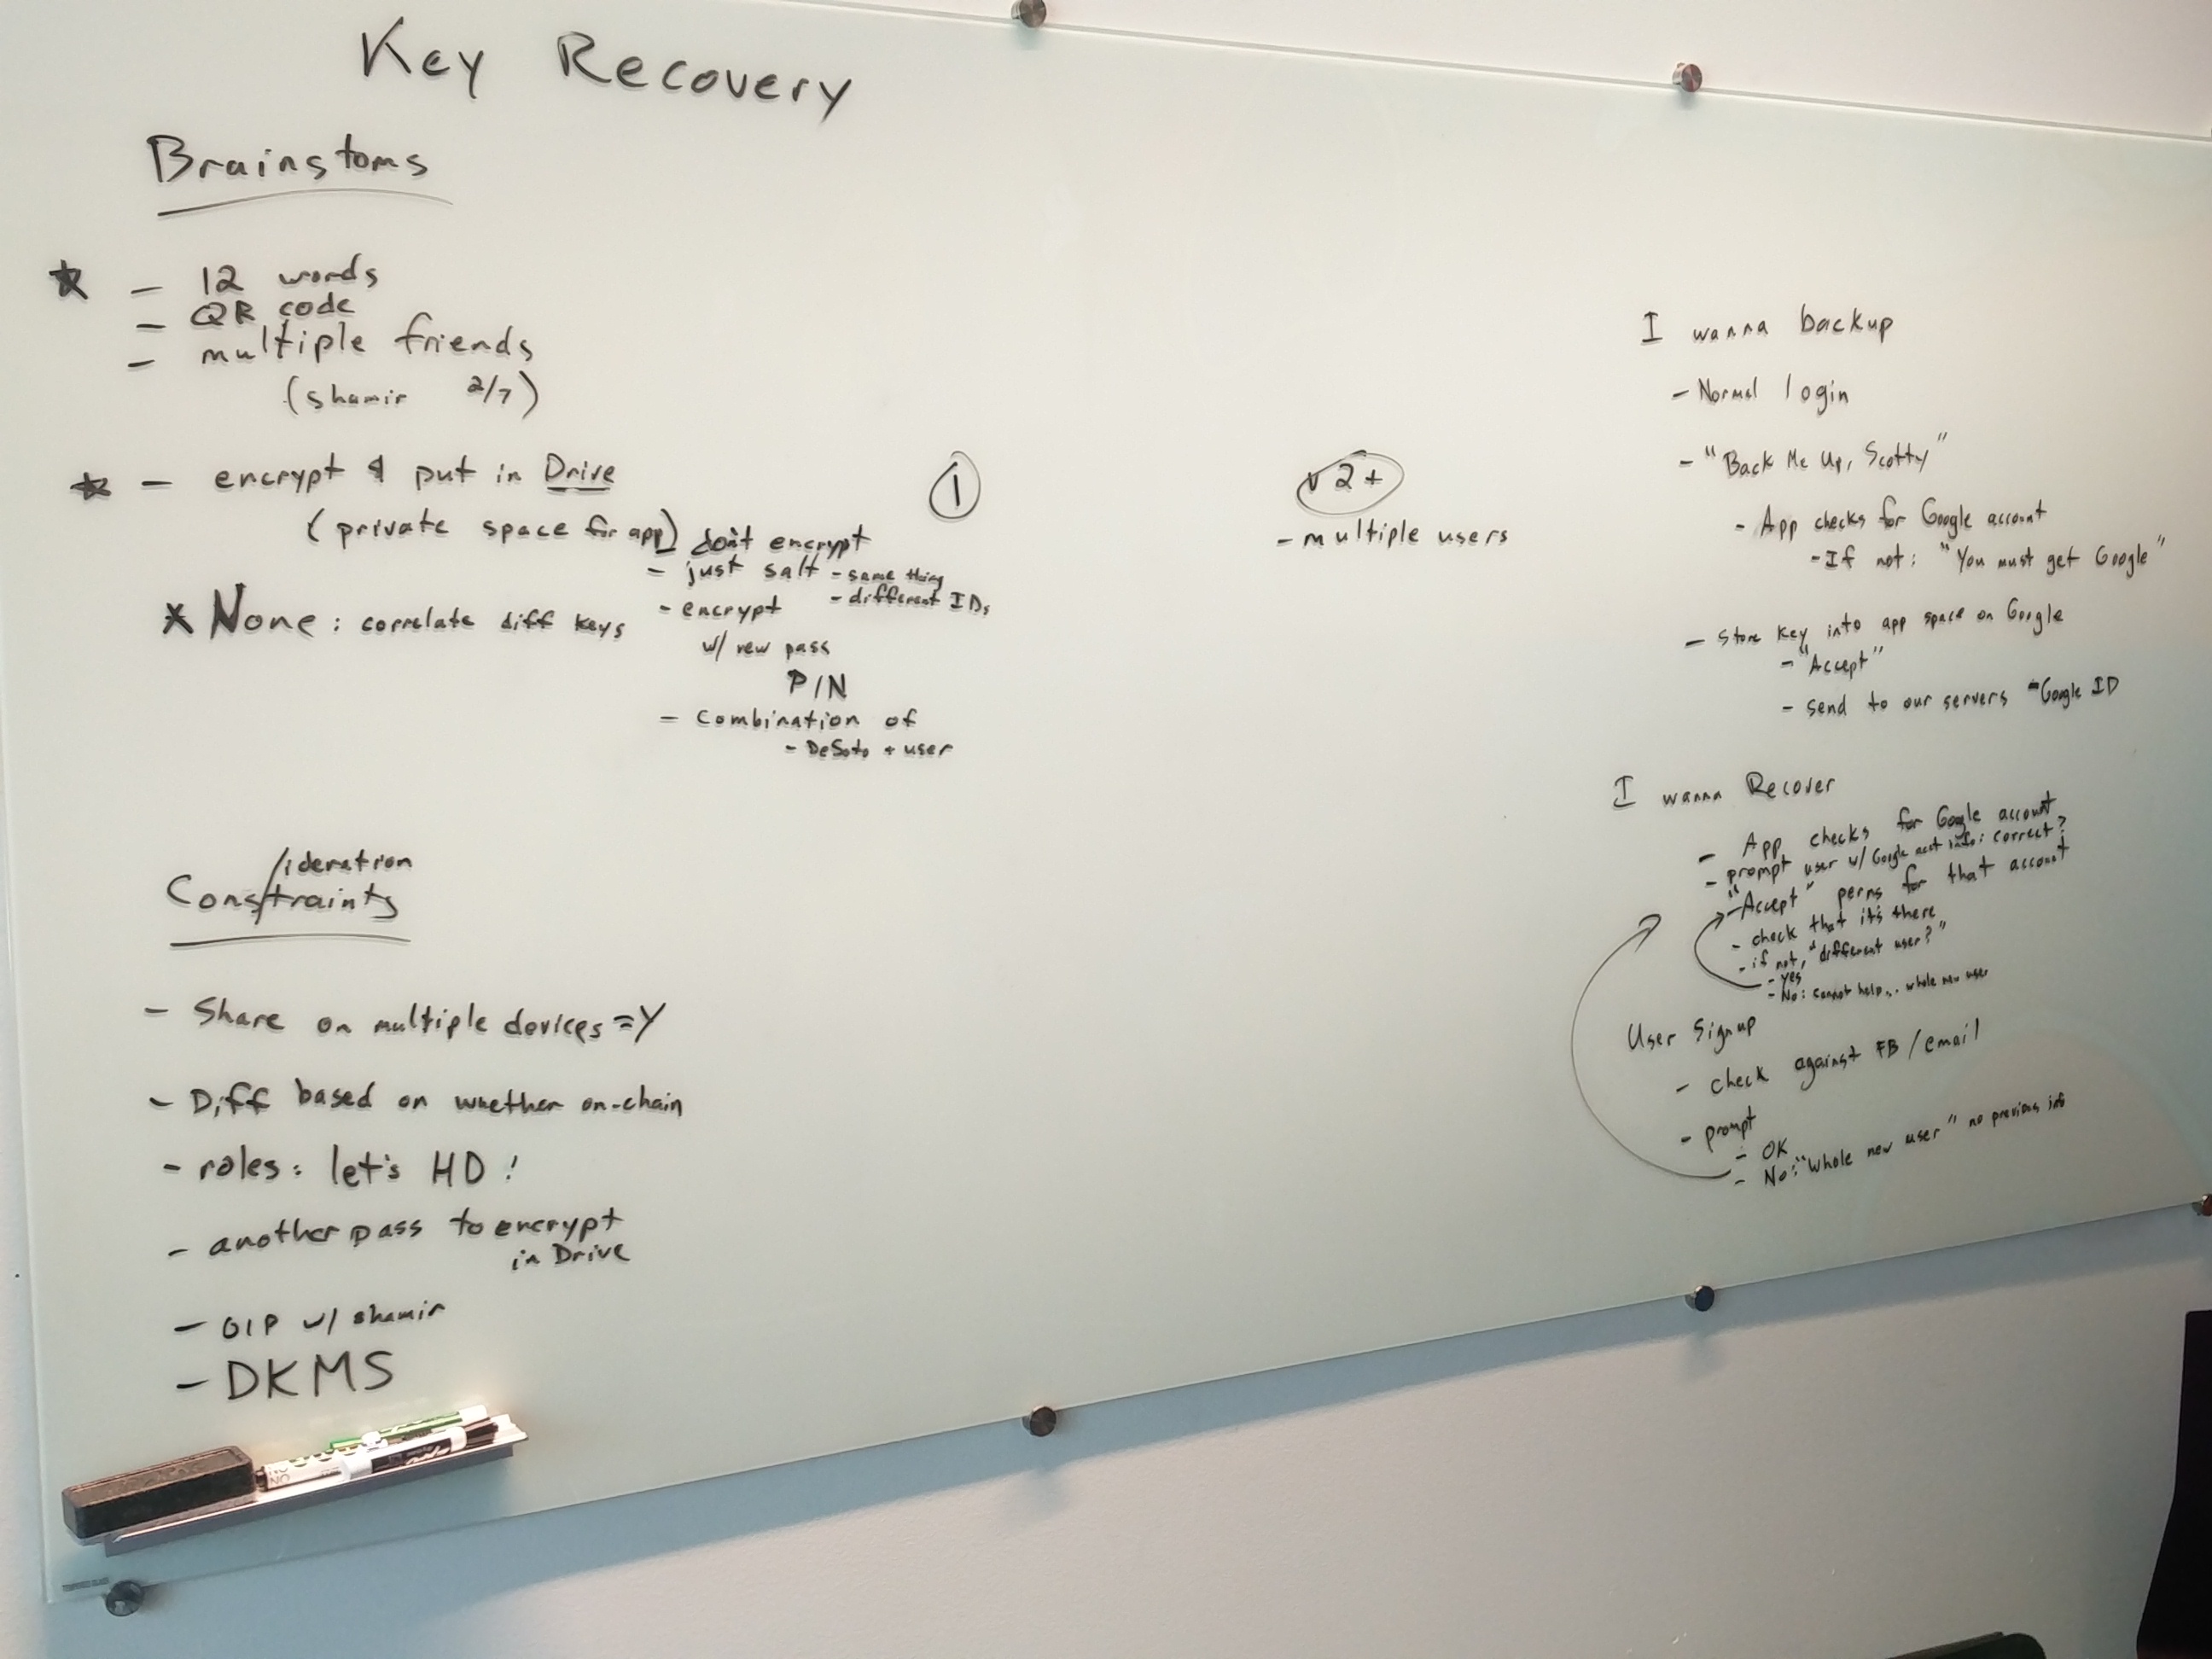 Key Recovery
Brainstoms
- 12 words
- QR code
- multiple friends
(shamir 2/7)
- encrypt & put in Drive
(private space for app)
- don't encrypt
- just salt - same thing
- different IDs
- encrypt
w/ new pass
PIN
- Combination of
- DeSoto + user
* None: correlate diff keys
1
v2+
- multiple users
/ideration
Constraints
- Share on multiple devices = Y
- Diff based on whether on-chain
- roles: let's HD!
- another pass to encrypt
in Drive
- OIP w/ shamir
- DKMS
I wanna backup
- Normal login
- "Back Me Up, Scotty"
- App checks for Google account
- If not: "You must get Google"
- Store key into app space on Google
- "Accept"
- send to our servers - Google ID
I wanna Recover
- App checks for Google account
- prompt user w/ Google acct info: correct?
- "Accept" perms for that account
- check that it's there
- if not, "different user?"
- Yes
- No: cannot help... whole new user
User Signup
- check against FB/email
- prompt
- OK
- No: "Whole new user" no previous info